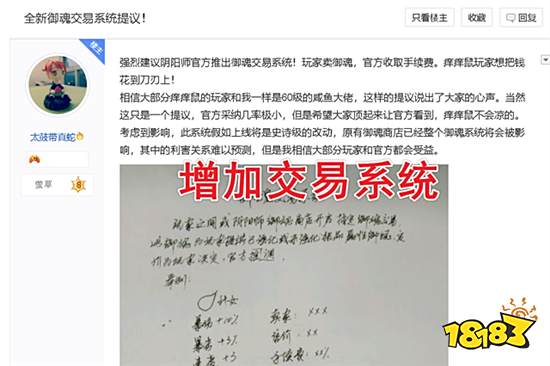 全新御魂交易系统提议！
只看楼主
收藏
回复
楼主
强烈建议阴阳师官方推出御魂交易系统！玩家卖御魂，官方收取手续费。痒痒鼠玩家想把钱
花到刀刃上！
相信大部分痒痒鼠的玩家和我一样是60级的咸鱼大佬，这样的提议说出了大家的心声。当然
这只是一个提议，官方采纳几率极小，但是希望大家顶起来让官方看到，痒痒鼠不会凉的。
考虑到影响，此系统假如上线将是史诗级的改动，原有御魂商店已经整个御魂系统将会被影
响，其中的利害关系难以预测，但是我相信大部分玩家和官方都会受益。
太鼓带真蛇
萤草 8
增加交易系统
举例：
针女
暴伤+10%
卖家：xxx
暴击+3%
售价：xx
速度+3
手续费：xx%
18183